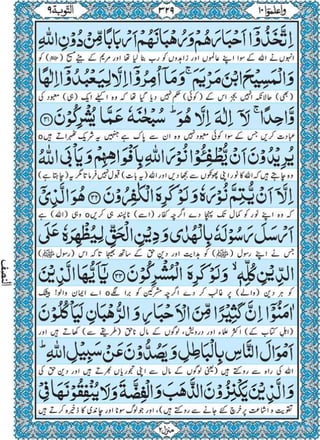 واعلموا ١٠ ٣٢٩ التوبة ٩
اِتَّخَذُوْۤا اَحْبَارَهُمْ وَرُهْبَانَهُمْ اَرْبَابًا مِّنْ دُوْنِ اللّٰهِ
انہوں نے اللہ کے سوا اپنے عالموں اور زاہدوں کو رب بنا لیا تھا اور مریم کے بیٹے مسیح کو
وَالْمَسِيْحَ ابْنَ مَرْيَمَ ۚ وَمَاۤ اُمِرُوْۤا اِلَّا لِيَعْبُدُوْۤا اِلٰهًا
(بھی) حالانکہ انہیں بجز اس کے (کوئی) حکم نہیں دیا گیا تھا کہ وہ اکیلے ایک (ہی) معبود کی
وَّاحِدًا ۚ لَاۤ اِلٰهَ اِلَّا هُوَ ؕ سُبْحٰنَهٗ عَمَّا يُشْرِكُوْنَ ﴿٣١﴾
عبادت کریں جس کے سوا کوئی معبود نہیں وہ ان سے پاک ہے جنہیں یہ شریک ٹھہراتے ہیں
يُرِيْدُوْنَ اَنْ يُّطْفِـُٔوْا نُوْرَ اللّٰهِ بِاَفْوَاهِهِمْ وَيَاْبَى اللّٰهُ
وہ چاہتے ہیں کہ اللہ کا نور اپنی پھونکوں سے بجھا دیں اور اللہ (یہ بات) قبول نہیں فرماتا مگر یہ (چاہتا ہے)
اِلَّاۤ اَنْ يُّتِمَّ نُوْرَهٗ وَلَوْ كَرِهَ الْكٰفِرُوْنَ ﴿٣٢﴾ هُوَ الَّذِيْۤ
کہ وہ اپنے نور کو کمال تک پہنچا دے اگرچہ کفار (اسے) ناپسند ہی کریں وہی (اللہ) ہے
اَرْسَلَ رَسُوْلَهٗ بِالْهُدٰى وَدِيْنِ الْحَقِّ لِيُظْهِرَهٗ عَلَى
جس نے اپنے رسول کو ہدایت اور دین حق کے ساتھ بھیجا تاکہ اس (رسول) کو
الدِّيْنِ كُلِّهٖ ۙ وَلَوْ كَرِهَ الْمُشْرِكُوْنَ ﴿٣٣﴾ يٰۤاَيُّهَا الَّذِيْنَ
ہر دین (والے) پر غالب کر دے اگرچہ مشرکین کو برا لگے اے ایمان والو! بیشک
اٰمَنُوْۤا اِنَّ كَثِيْرًا مِّنَ الْاَحْبَارِ وَالرُّهْبَانِ لَيَاْكُلُوْنَ
(اہل کتاب کے) اکثر علماء اور درویش، لوگوں کے مال ناحق (طریقے سے) کھاتے ہیں اور
اَمْوَالَ النَّاسِ بِالْبَاطِلِ وَيَصُدُّوْنَ عَنْ سَبِيْلِ اللّٰهِ ؕ
اللہ کی راہ سے روکتے ہیں (یعنی لوگوں کے مال سے اپنی تجوریاں بھرتے ہیں اور دین حق کی
وَالَّذِيْنَ يَكْنِزُوْنَ الذَّهَبَ وَالْفِضَّةَ وَلَا يُنْفِقُوْنَهَا فِيْ
تقویت و اشاعت پر خرچ کئے جانے سے روکتے ہیں)، اور جو لوگ سونا اور چاندی کا ذخیرہ کرتے ہیں
النصف
منزل ٢